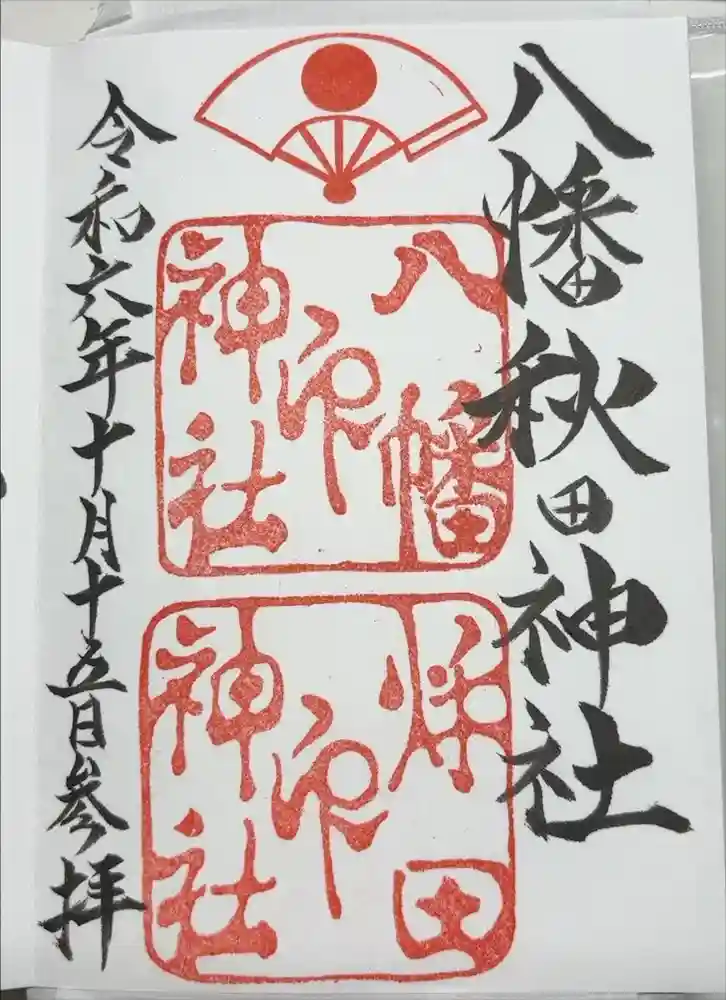 八幡秋田神社
八幡
神印
神社
秌田
神印
神社
令和六年十月十五日参拝